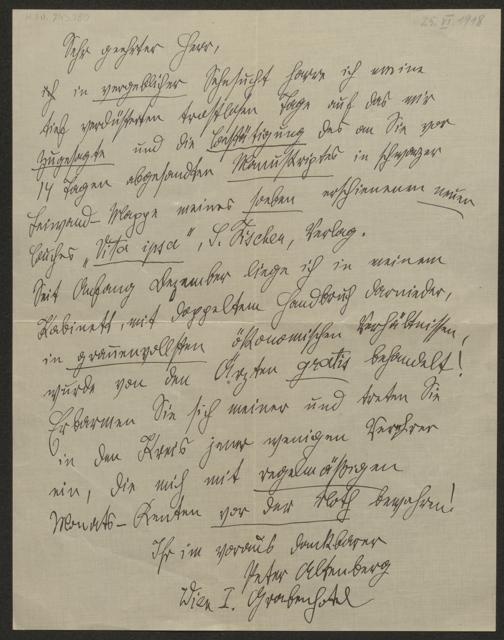 H.I.N. 243.380
25. VI. 1918
Sehr geehrter Herr,
in vergeblicher Sehnsucht harre ich meine
tief verdüsterten trostlosen Tage auf das mir
zugesagte und die Bestätigung des an Sie vor
14 Tagen abgesandten Manuskriptes in schwarzer
Leinwand-Mappe meines soeben erschienenen neuen
Buches „Vita ipsa“, S. Fischer, Verlag.
Seit Anfang Dezember liege ich in meinem
Kabinett, mit doppeltem Handbruch darnieder,
in grauenvollsten ökonomischen Verhältnissen,
wurde von den Ärzten gratis behandelt!
Erbarmen Sie sich meiner und treten Sie
in den Kreis jener wenigen Verehrer
ein, die mich mit regelmäßigen
Monats-Renten vor der Noth bewahren!
Ihr im voraus dankbarer
Peter Altenberg
Wien I. Grabenhotel